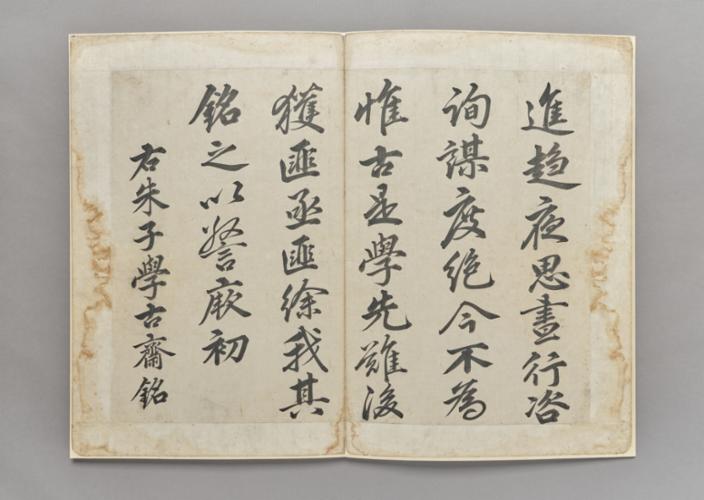 進趋夜思晝行咨
詢謀度絶今不為
惟古是學先難後
獲匪亟匪徐我其
銘之以警厥初
右朱子學古齋銘